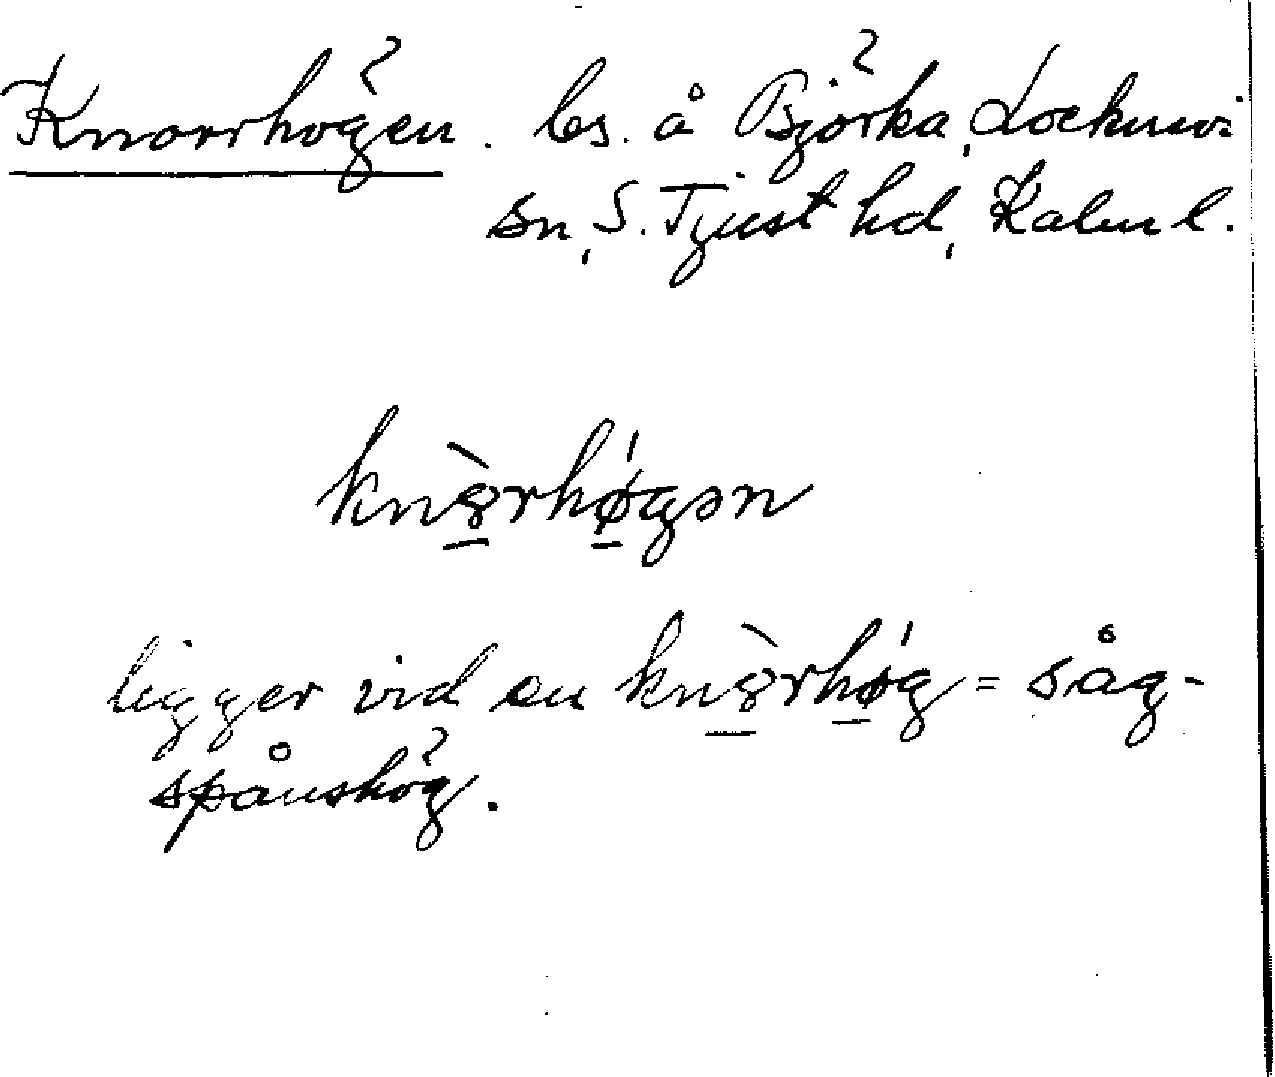 Knorrhögen. ls. å Björka, Locknevi
sn, S. Tjust hd, Kalm l.
kn8̀rhǿgən
ligger vid en kn8̀rhǿg = såg-
spånshög.